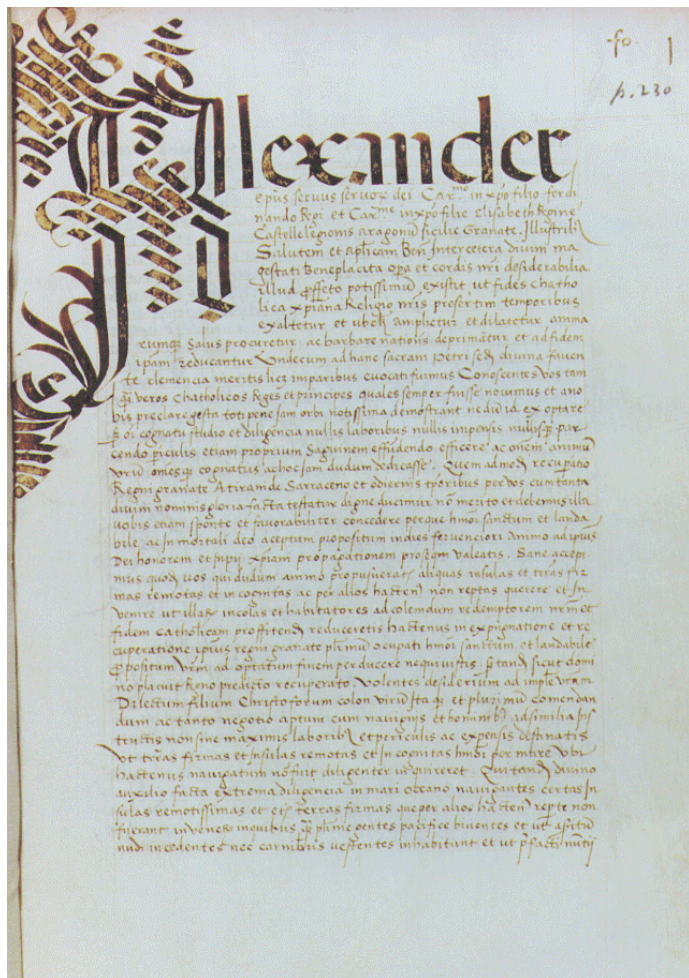 fo 1
p. 230
Alexander
epus servus servox dei Carme in xpo filio ferdi
nando Regi et Carme in xpo filie elisabeth Regine
Castelle legionis aragonu sicilie Granate. Illustribz
Salutem et aplicam Ben Intercetera divini ma
gestati Beneplacita opa et cordis nri desiderabilia
illud profeto potissimu existit ut fides chatho
lica xpiana Religio nris presertim temporibus
exaltetur et ubelz amplietur et dilatetur anima
rumqz salus procuretur ac barbare nationis deprimatur et ad fidem
ipam reducantur Undecum ad hanc sacram Petri sedz divina faven
te clemencia meritis licz imparibus evocati fuimus Conoscentes vos tam
qz veros Chatholicos Reges et principes quales semper fuisse novimus et ano
bis preclare gesta toti pene jam orbi notissima demostrant nedu id ex optare
sz oi cognatu studio et diligencia nullis laboribus nullis impensis nullisqz par
cendo periculis etiam proprium Saguinem effudendo efficere ac onem animu
vrm omesqz cognatus ad hoc jam dudum dedicasse. Quem ad modz recupatio
Regni granate Atiramde Sarraceno et odiernis tporibus per vos cum tanta
divini nominis gloria facta testatur digne ducimur no merito et debemus illa
vobis etiam sponte et favorabiliter concedere per que hmoi sanctum et landa
bile ac In mortali deo aceptum propositum indies fervenciori Animo ad ipius
Dei honorem et Inpij xpiani propagationem prosequi valeatis. Sane accepi
mus quodz vos qui dudum animo propusueratis aliquas insulas et terras fir
mas remotas et in cognitas ac per alios hacteni non reptas querere et In
venire ut illarz incolas et habitatores ad colendum redemptorem nrm et
fidem catholicam proffitendz reduceretis hactenus in expugnatione et re
cuperatione ipius regni granate plurimu ocupati hmoi sanctum et landabile
propositum vrm ad optatum finem perducere nequivistis. sz tandz sicut domi
no placuit Regno predicto recuperato. volentes desiderium ad implere vrum
Dilectum filium Christoforum colon virum Ita qz et plurimu comendan
dum ac tanto negotio aptum cum navigiis et hominibz ad similia Ins
tructis non sine maximis laboribz et periculis ac expensis destinatis
ut terras firmas et Insulas remotas et In cognitas hmoi per mare ubi
hactenus navigatum no fuit diligenter in quireret. Qui tandz divino
auxilio facta extrema diligencia in mari oceano navigantes certas In
sulas remotissimas et etiz terras firmas que per alios hacteni reperte non
fuerant invenerz inquibus qz plurime gentes pacifice biventes et ut aseritur
nudi incedentes nec carnibus vescentes inhabitant et ut prefacti nuntij